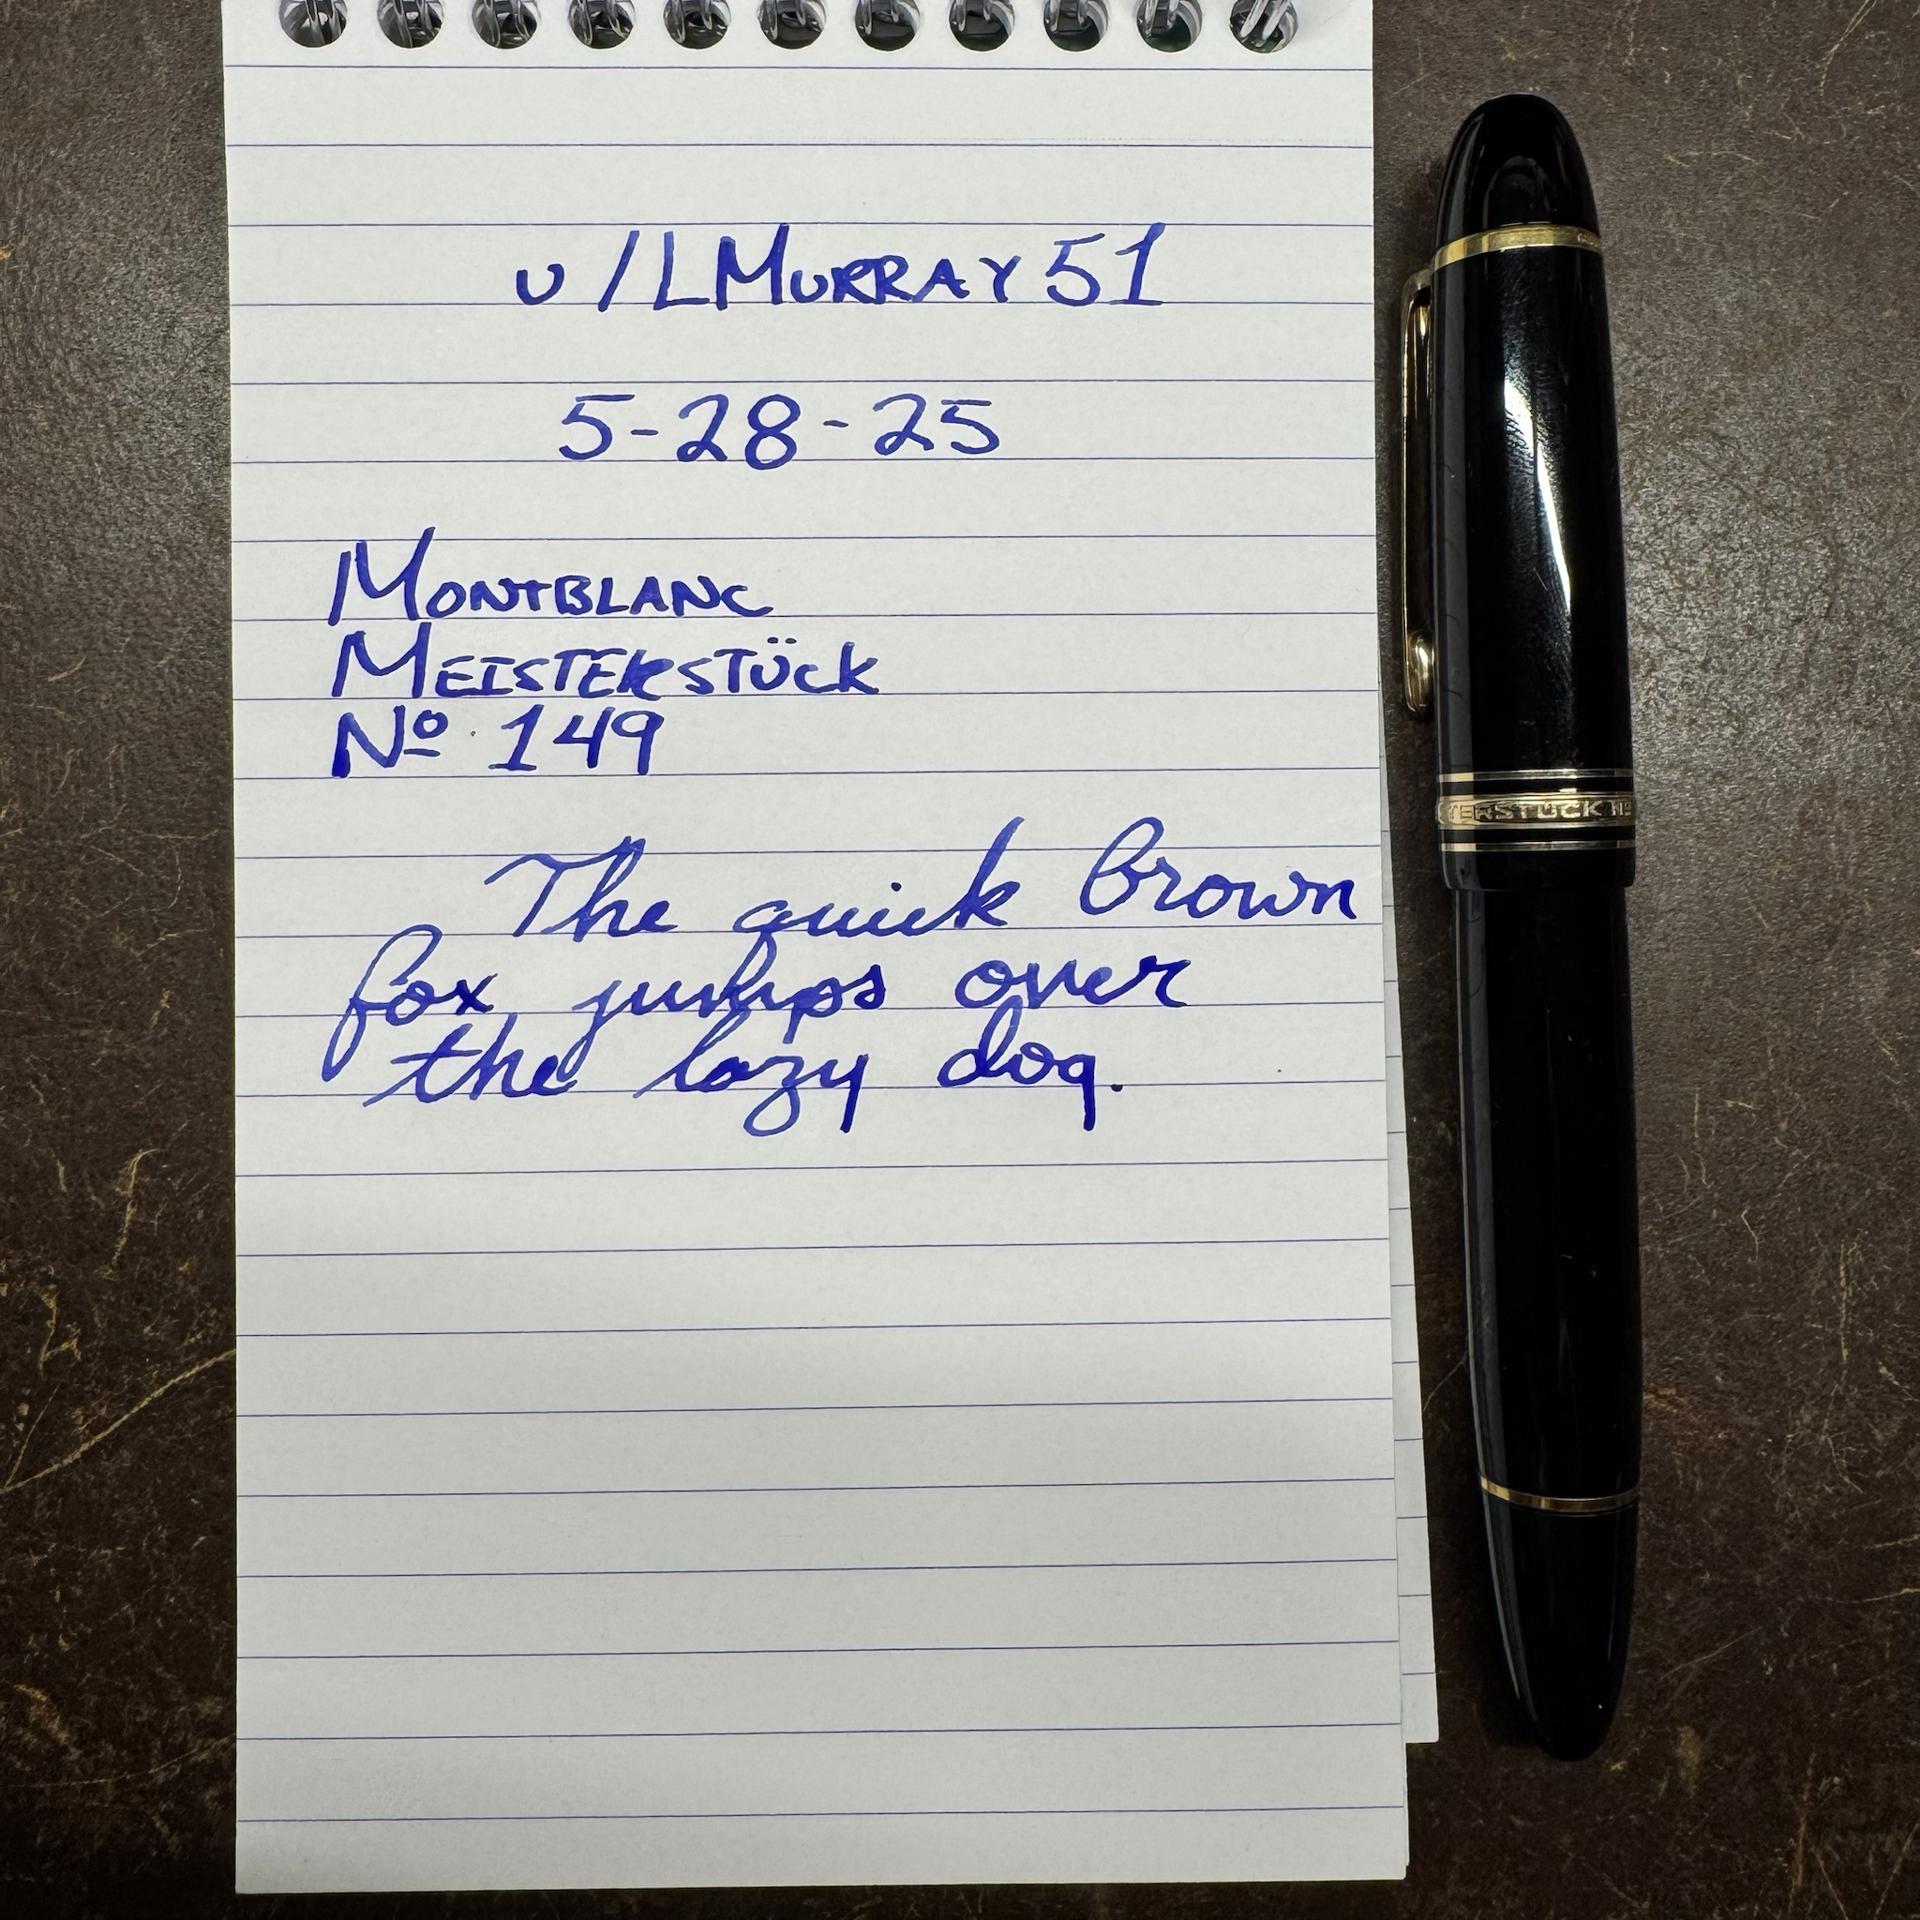 u/LMURRAY51
5-28-25
MONTBLANC
MEISTERSTÜCK
Nº 149
The quick brown
fox jumps over
the lazy dog.
TERSTÜCK Nº